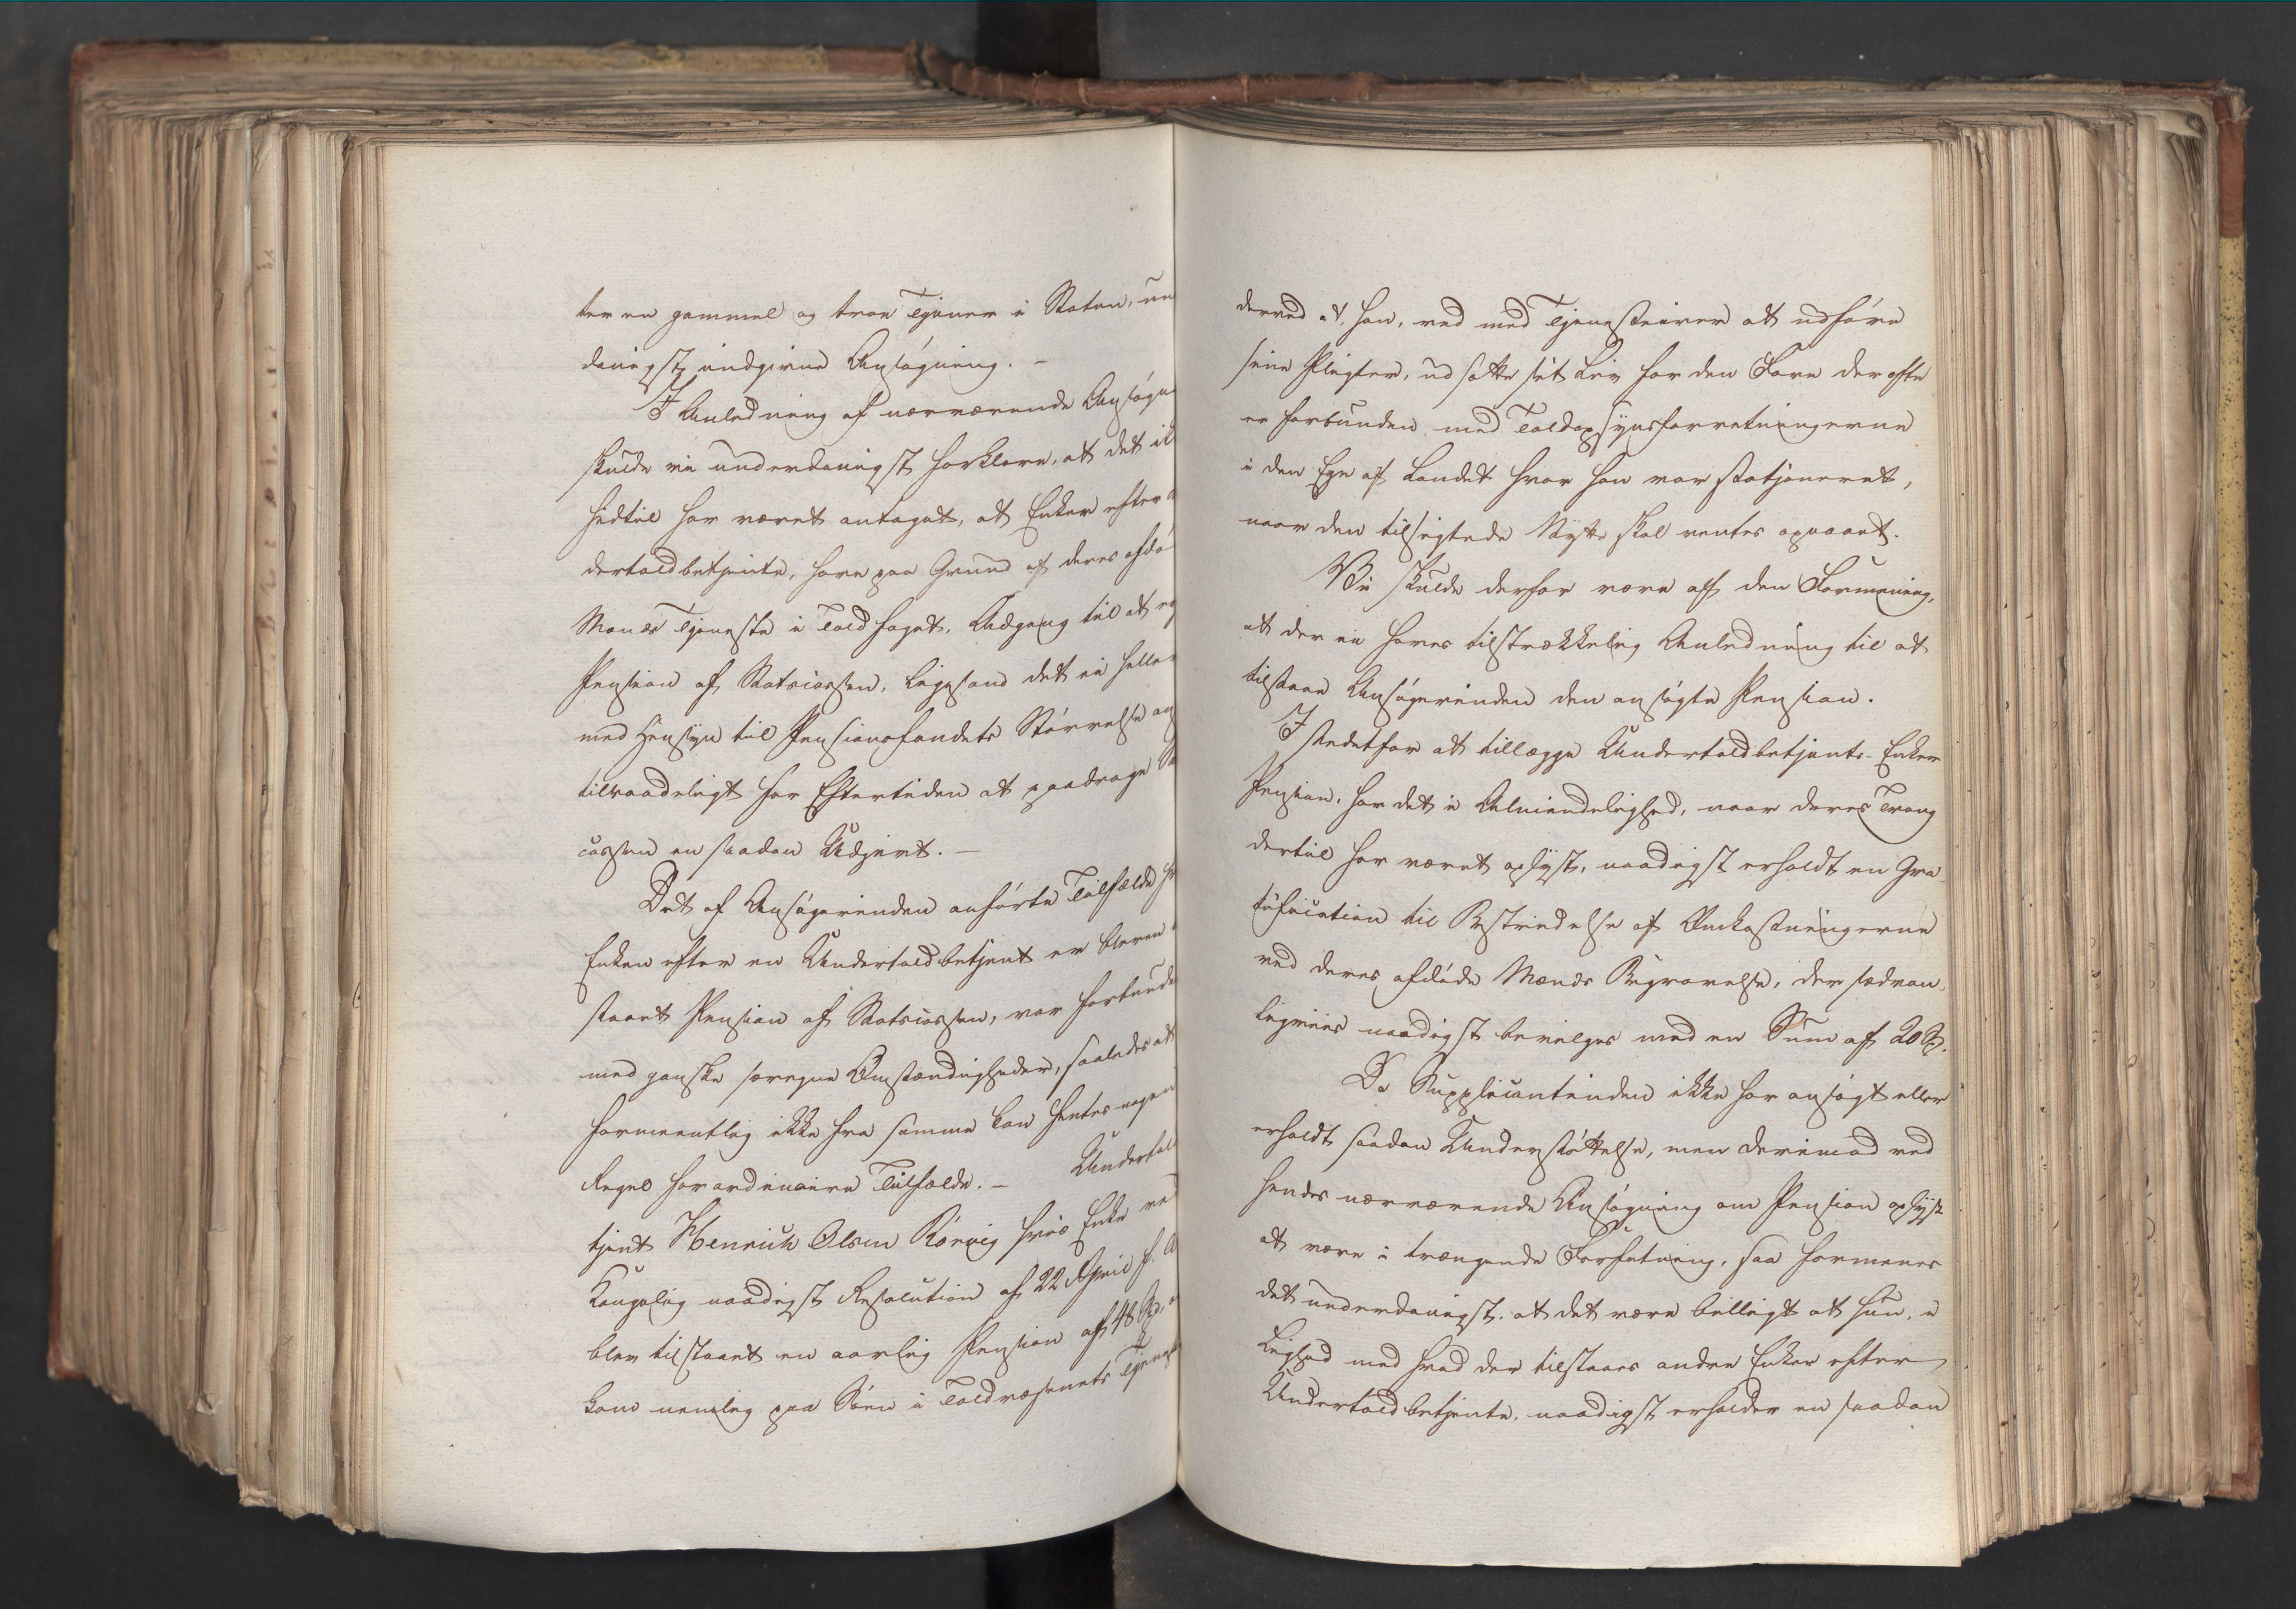 ter en gammel og troe Tjener i Staten, un
danigst indgivne Ansøgning. –
I Anledning af nærværende Ansøgn
skulde vi underdanigst forklare, at det ik
hidtil har været antaget, at Enker efter
dertoldbetjente, have paa Grund af deres afdø
Mænds Tjeneste i Toldfaget, Adgang til at
Pension af Statscassen, ligesom det ei heller
med Hensyn til Pensionsfondets Størrelse
tilraadeligt for Eftertiden at paadrage
cassen en saadan Udgivt. –
Det af Ansøgerinden anførte Tilfælde
Enken efter en Undertoldbetjent er bleven
staaet Pension af Statscassen, var forbunde
med ganske særegne Omstændigheder, saaledes at
formeentlig ikke fra samme kan hentes nogen
Regel for ordinaire Tilfælde. – Undertol
tjent Henrich Olsen Rörvig hvis Enke ve
Kongelig naadigst Resolution af 22 April f. A
blev tilstaaet en aarlig Pension af 48 Spd,
kom nemlig paa Søen i Toldvæsenets Tjenest
derved at han, ved med Tjenesteiver at udføre
sine Pligter, udsatte sit Liv for den Fare der ofte
er forbunden med Toldopsynsforretningerne
i den Egn af Landet hvor han var stationeret,
naar den tilsigtede Nytte skal ventes opnaaet.
Vi skulde derfor være af den Formening,
at der ei haves tilstrækkelig Anledning til at
tilstaae Ansøgerinden den ansøgte Pension.
I stedetfor at tillægge Undertoldbetjents-Enker
Pension, har det i Almindelighed, naar deres Trang
dertil har været oplyst, naadigst erholdt en Gra-
tification til Bestridelse af Omkostningerne
ved deres afdøde Mænds Begravelse, der sædvan-
ligviis naadigst bevilges med en Sum af 20 Spd.
Da Supplicantinden ikke har ansøgt eller
erholdt saadan Understøttelse, men derimod ved
hendes nærværende Ansøgning om Pension oplyst
at være i trængende Forfatning, saa formenes
det underdanigst, at det være billigt at hun, i
Lighed med hvad der tilstaaes andre Enker efter
Undertoldbetjente, naadigst erholder en saadan